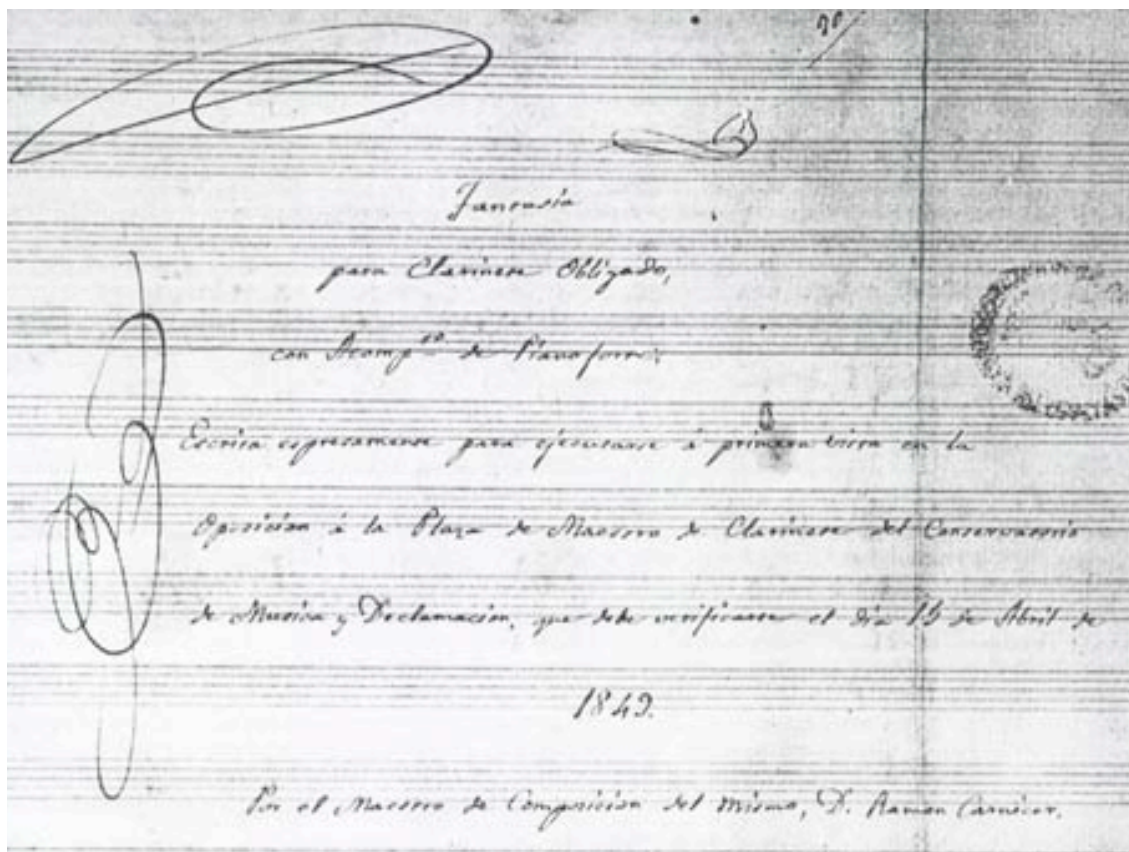 Fantasía
para Clarinete Obligado,
con Acomp.to de Pianoforte.
Escrita espresamente para ejecutarse á primera vista en la
Oposicion á la Plaza de Maestro de Clarinete del Conservatorio
de Musica y Declamacion, que debe verificarse el dia 15 de Abril de
1849.
Por el Maestro de Composicion del mismo, D. Ramon Carnicer.